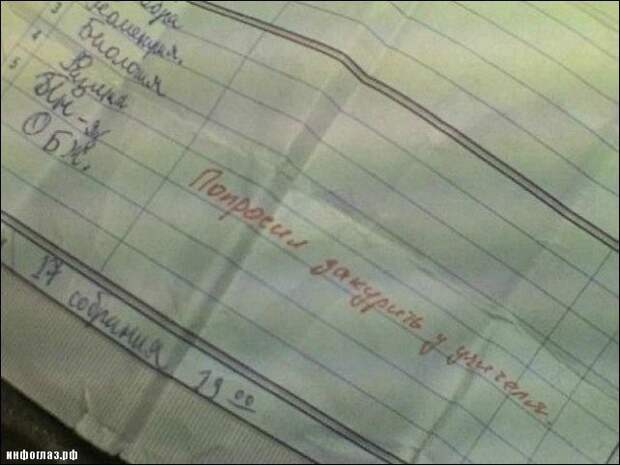 Геометрия.
Биология
Физика
ОБЖ.
Попросил закурить у учителя.
17 собрания 19 00
инфоглаз.рф